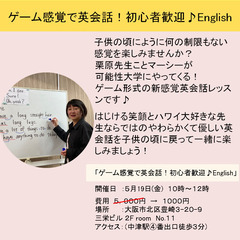 ゲーム感覚で英会話！初心者歓迎♪English
子供の頃にように何の制限もない
感覚を楽しみませんか？
栗原先生ことマーシーが
可能性大学にやってくる！
ゲーム形式の新感覚英会話レッス
ンです♪
はじける笑顔とハワイ大好きな先
生ならではのやわらかくて優しい英
会話を子供の頃に戻って一緒に楽
しみましょう！
「ゲーム感覚で英会話！初心者歓迎♪English」
開催日　：5月19日(金)　10時～12時
費用　5,000円　→　1000円
場所　　：大阪市北区豊崎3-20-9
三栄ビル 2F room　No.11
アクセス：(中津駅④番出口徒歩3分)